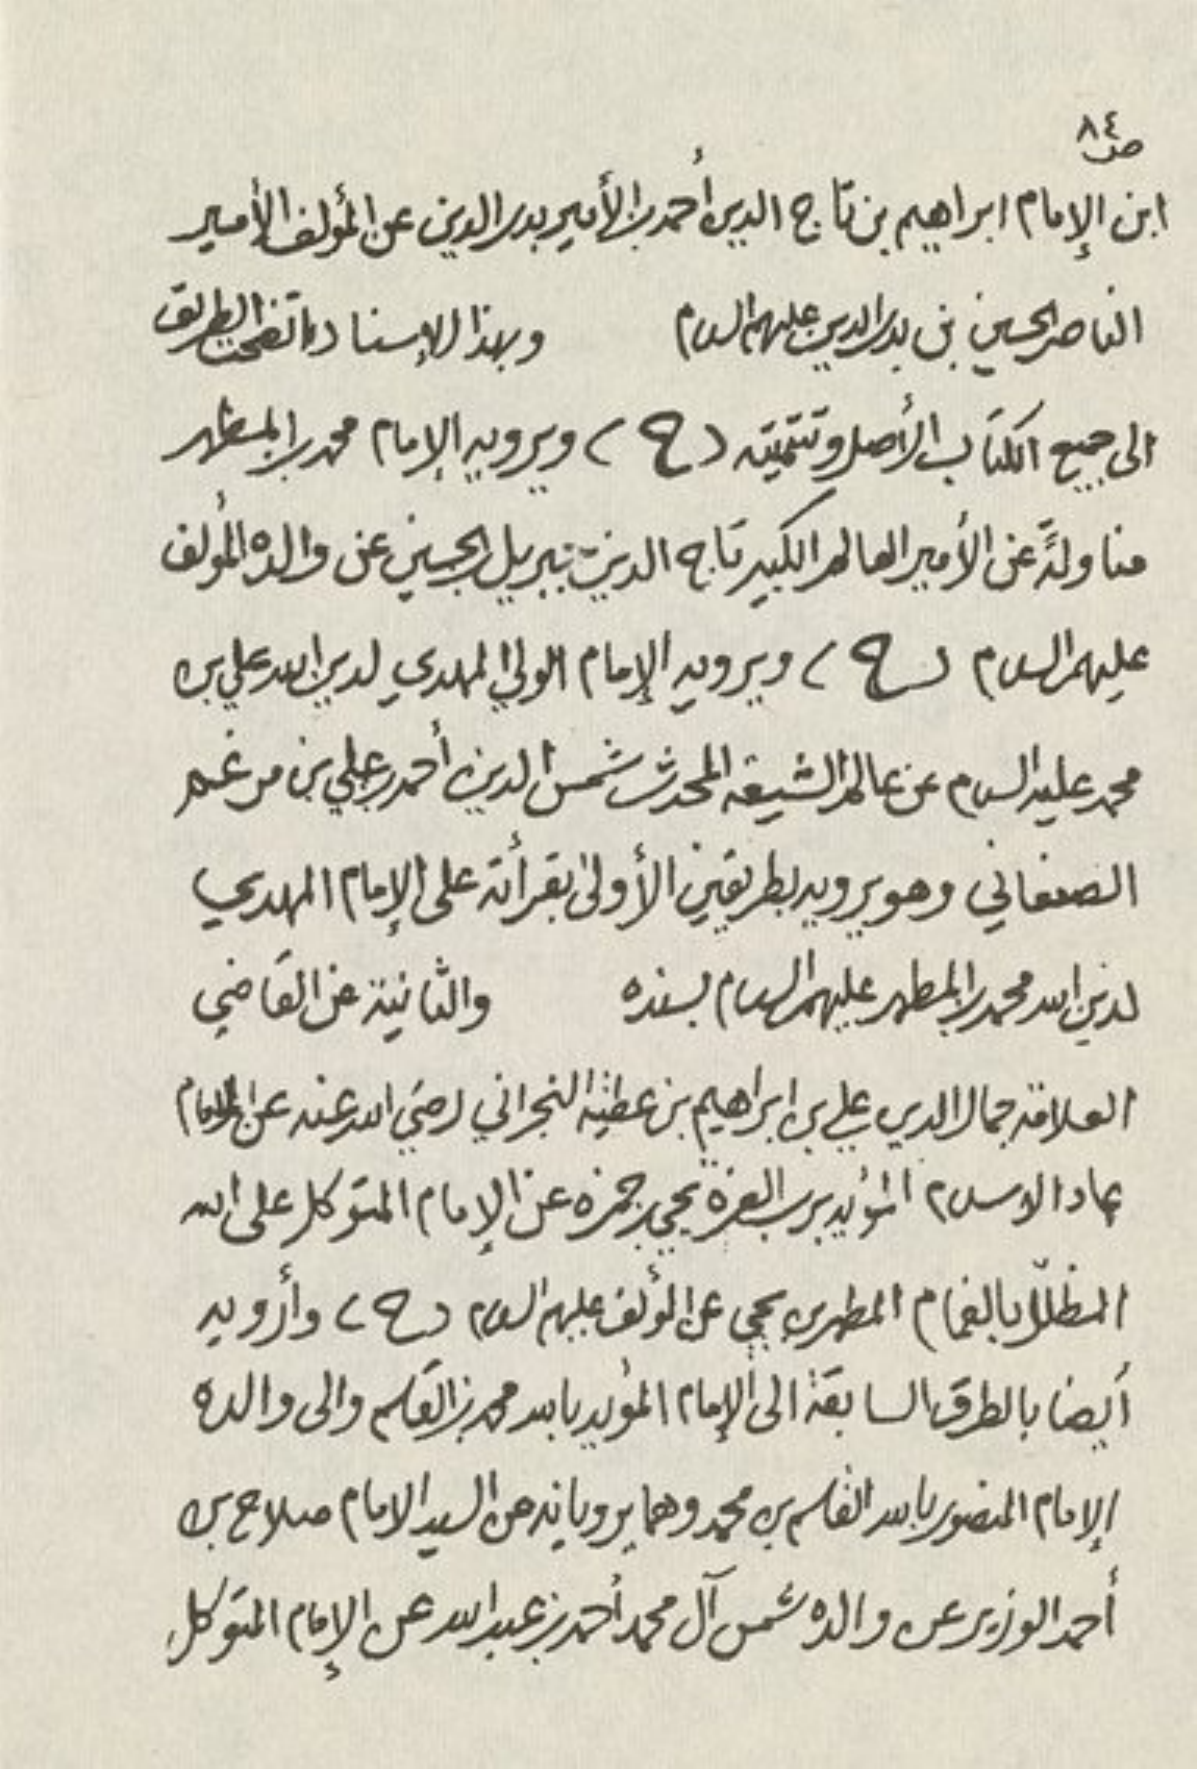 ص ٨٤
ابن الإمام ابراهيم بن تاج الدين أحمد بن الأمير بدر الدين عن المؤلف الأمير
الناصر الحسين بن بدر الدين عليهم السلام وبهذا الإسناد اتضحت الطريق
الى جميع الكتاب الأصل وتتمته (ح) ويرويه الإمام محمد بن المطهر
مناولةً عن الأمير العالم الكبير تاج الدين جبريل بن الحسين عن والده المؤلف
عليهم السلام (ح) ويرويه الإمام الولي المهدي لدين الله علي بن
محمد عليه السلام عن عالم الشيعة المحدث شمس الدين أحمد بن علي بن مرغم
الصنعاني وهو يرويه بطريقين الأولى بقرأته على الإمام المهدي
لدين الله محمد بن المطهر عليهم السلام بسنده والثانية عن القاضي
العلامة جمال الدين علي بن ابراهيم بن عطية النجراني رضي الله عنه عن الإمام
عماد الاسلام المؤيد برب العزة يحيى بن حمزه عن الإمام المتوكل على الله
المظلّل بالغمام المطهر بن يحيى عن المؤلف عليهم السلام (ح) وأرويه
أيضا بالطرق السابقة الى الإمام المؤيد بالله محمد بن القاسم والى والده
الإمام المنصور بالله القاسم بن محمد وهما يرويانه عن السيد الامام صلاح بن
أحمد الوزير عن والده شمس آل محمد أحمد بن عبد الله عن الإمام المتوكل